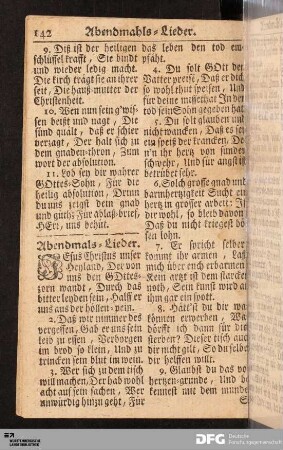 142 Abendmahls-Lieder.
9. Diß ist der heiligen
schlüssel krafft, Sie bindt
und wieder ledig macht.
Die kirch trägt sie an ihrer
seit, Die hauß-mutter der
Christenheit.
10. Wen nun sein g'wis-
sen beißt und nagt, Die
sünd quält, daß er schier
verzagt, Der halt sich zu
dem gnaden-thron, Zum
wort der absolution.
11. Lob sey dir wahrer
GOttes-Sohn, Für die
heilig absolution, Drinn
du uns zeigst dein gnad
und güth; Für ablaß-brief,
HErr, uns behüt.
Abendmals-Lieder.
JEsus Christus unser
Heyland, Der von
uns den GOttes-
zorn wandt, Durch das
bitter leyden sein, Halff er
uns aus der höllen-pein.
2. Daß wir nimmer des
vergessen, Gab er uns sein
leib zu essen, Verborgen
im brod so klein, Und zu
trincken sein blut im wein.
3. Wer sich zu dem tisch
will machen, Der hab wohl
acht auf sein sachen, Wer
unwürdig hinzu geht, Für
das leben den tod em-
pfäht.
4. Du solt GOtt den
Vatter preisen, Daß er dich
so wohl thut speisen, Und
für deine missethat In den
tod sein Sohn gegeben hat.
5. Du solt glauben und
nicht wancken, Daß es sey
ein speiß der krancken, De-
n'n ihr herz von sünden
schwehr, Und für angst ist
betrübet sehr.
6. Solch grosse gnad und
barmherzigkeit Sucht ein
herz in grosser arbeit: Ist
dir wohl, so bleib davon
Daß du nicht kriegest bö-
sen lohn.
7. Er spricht selber
kommt ihr armen, Laßt
mich über euch erbarmen
Kein arzt ist dem starcken
noth, Sein kunst wird an
ihm gar ein spott.
8. Hätt'st du dir was
können erwerben, Was
dörfft ich dann für dich
sterben? Dieser tisch auch
dir nicht gilt, So du selber
dir helffen willt.
9. Glaubst du das von
hertzen-grunde, Und be-
kennest mit dem munde
DFG